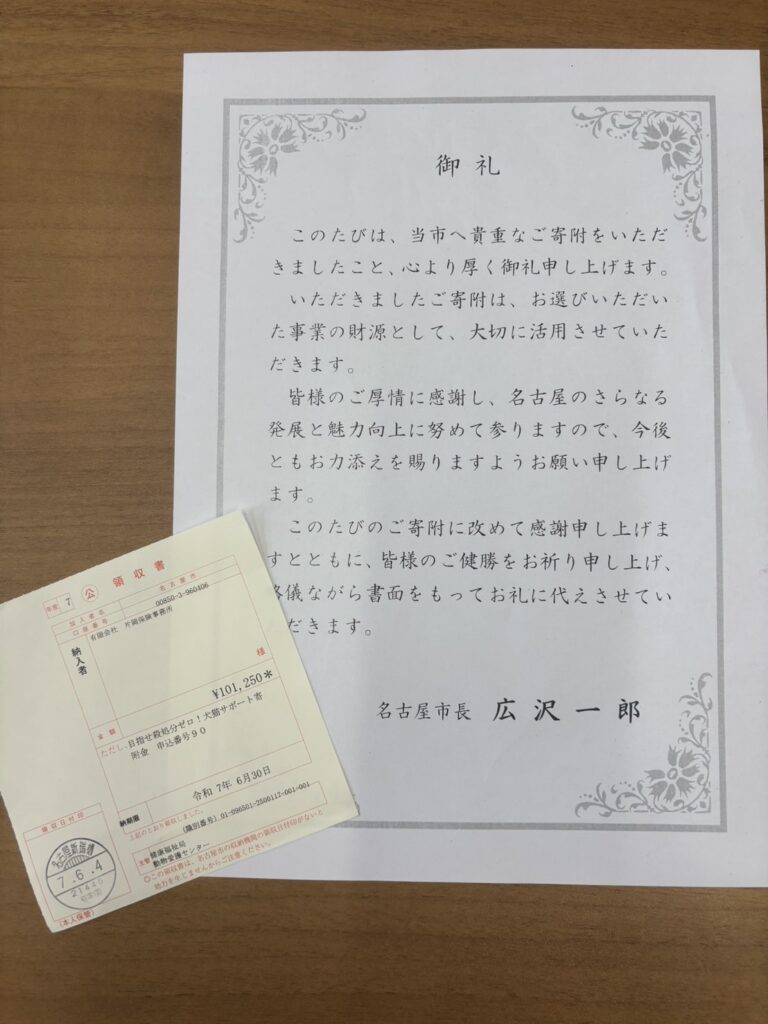 御礼
このたびは、当市へ貴重なご寄附をいただ
きましたこと、心より厚く御礼申し上げます。
いただきましたご寄附は、お選びいただい
た事業の財源として、大切に活用させていた
だきます。
皆様のご厚情に感謝し、名古屋のさらなる
発展と魅力向上に努めて参りますので、今後
ともお力添えを賜りますようお願い申し上げ
ます。
このたびのご寄附に改めて感謝申し上げま
すとともに、皆様のご健勝をお祈り申し上げ、
儀ながら書面をもってお礼に代えさせてい
だきます。
名古屋市長 広沢一郎
年度 7 公 領収書
加入者名 名古屋市
口座番号 00850-3-960406
納入者
有限会社 片岡保険事務所
様
金額 ¥101,250*
ただし、目指せ殺処分ゼロ!犬猫サポート寄
附金 申込番号90
納期限 令和 7年 6月30日
上記のとおり領収しました。
(識別番号) 01-096501-2500117-001-001
主管 健康福祉局
動物愛護センター
◎この領収書は、名古屋市の収納機関の領収日付印がないと
効力を生じませんからご注意ください。
領収日付印
7.6.4
21440
(本人保管)